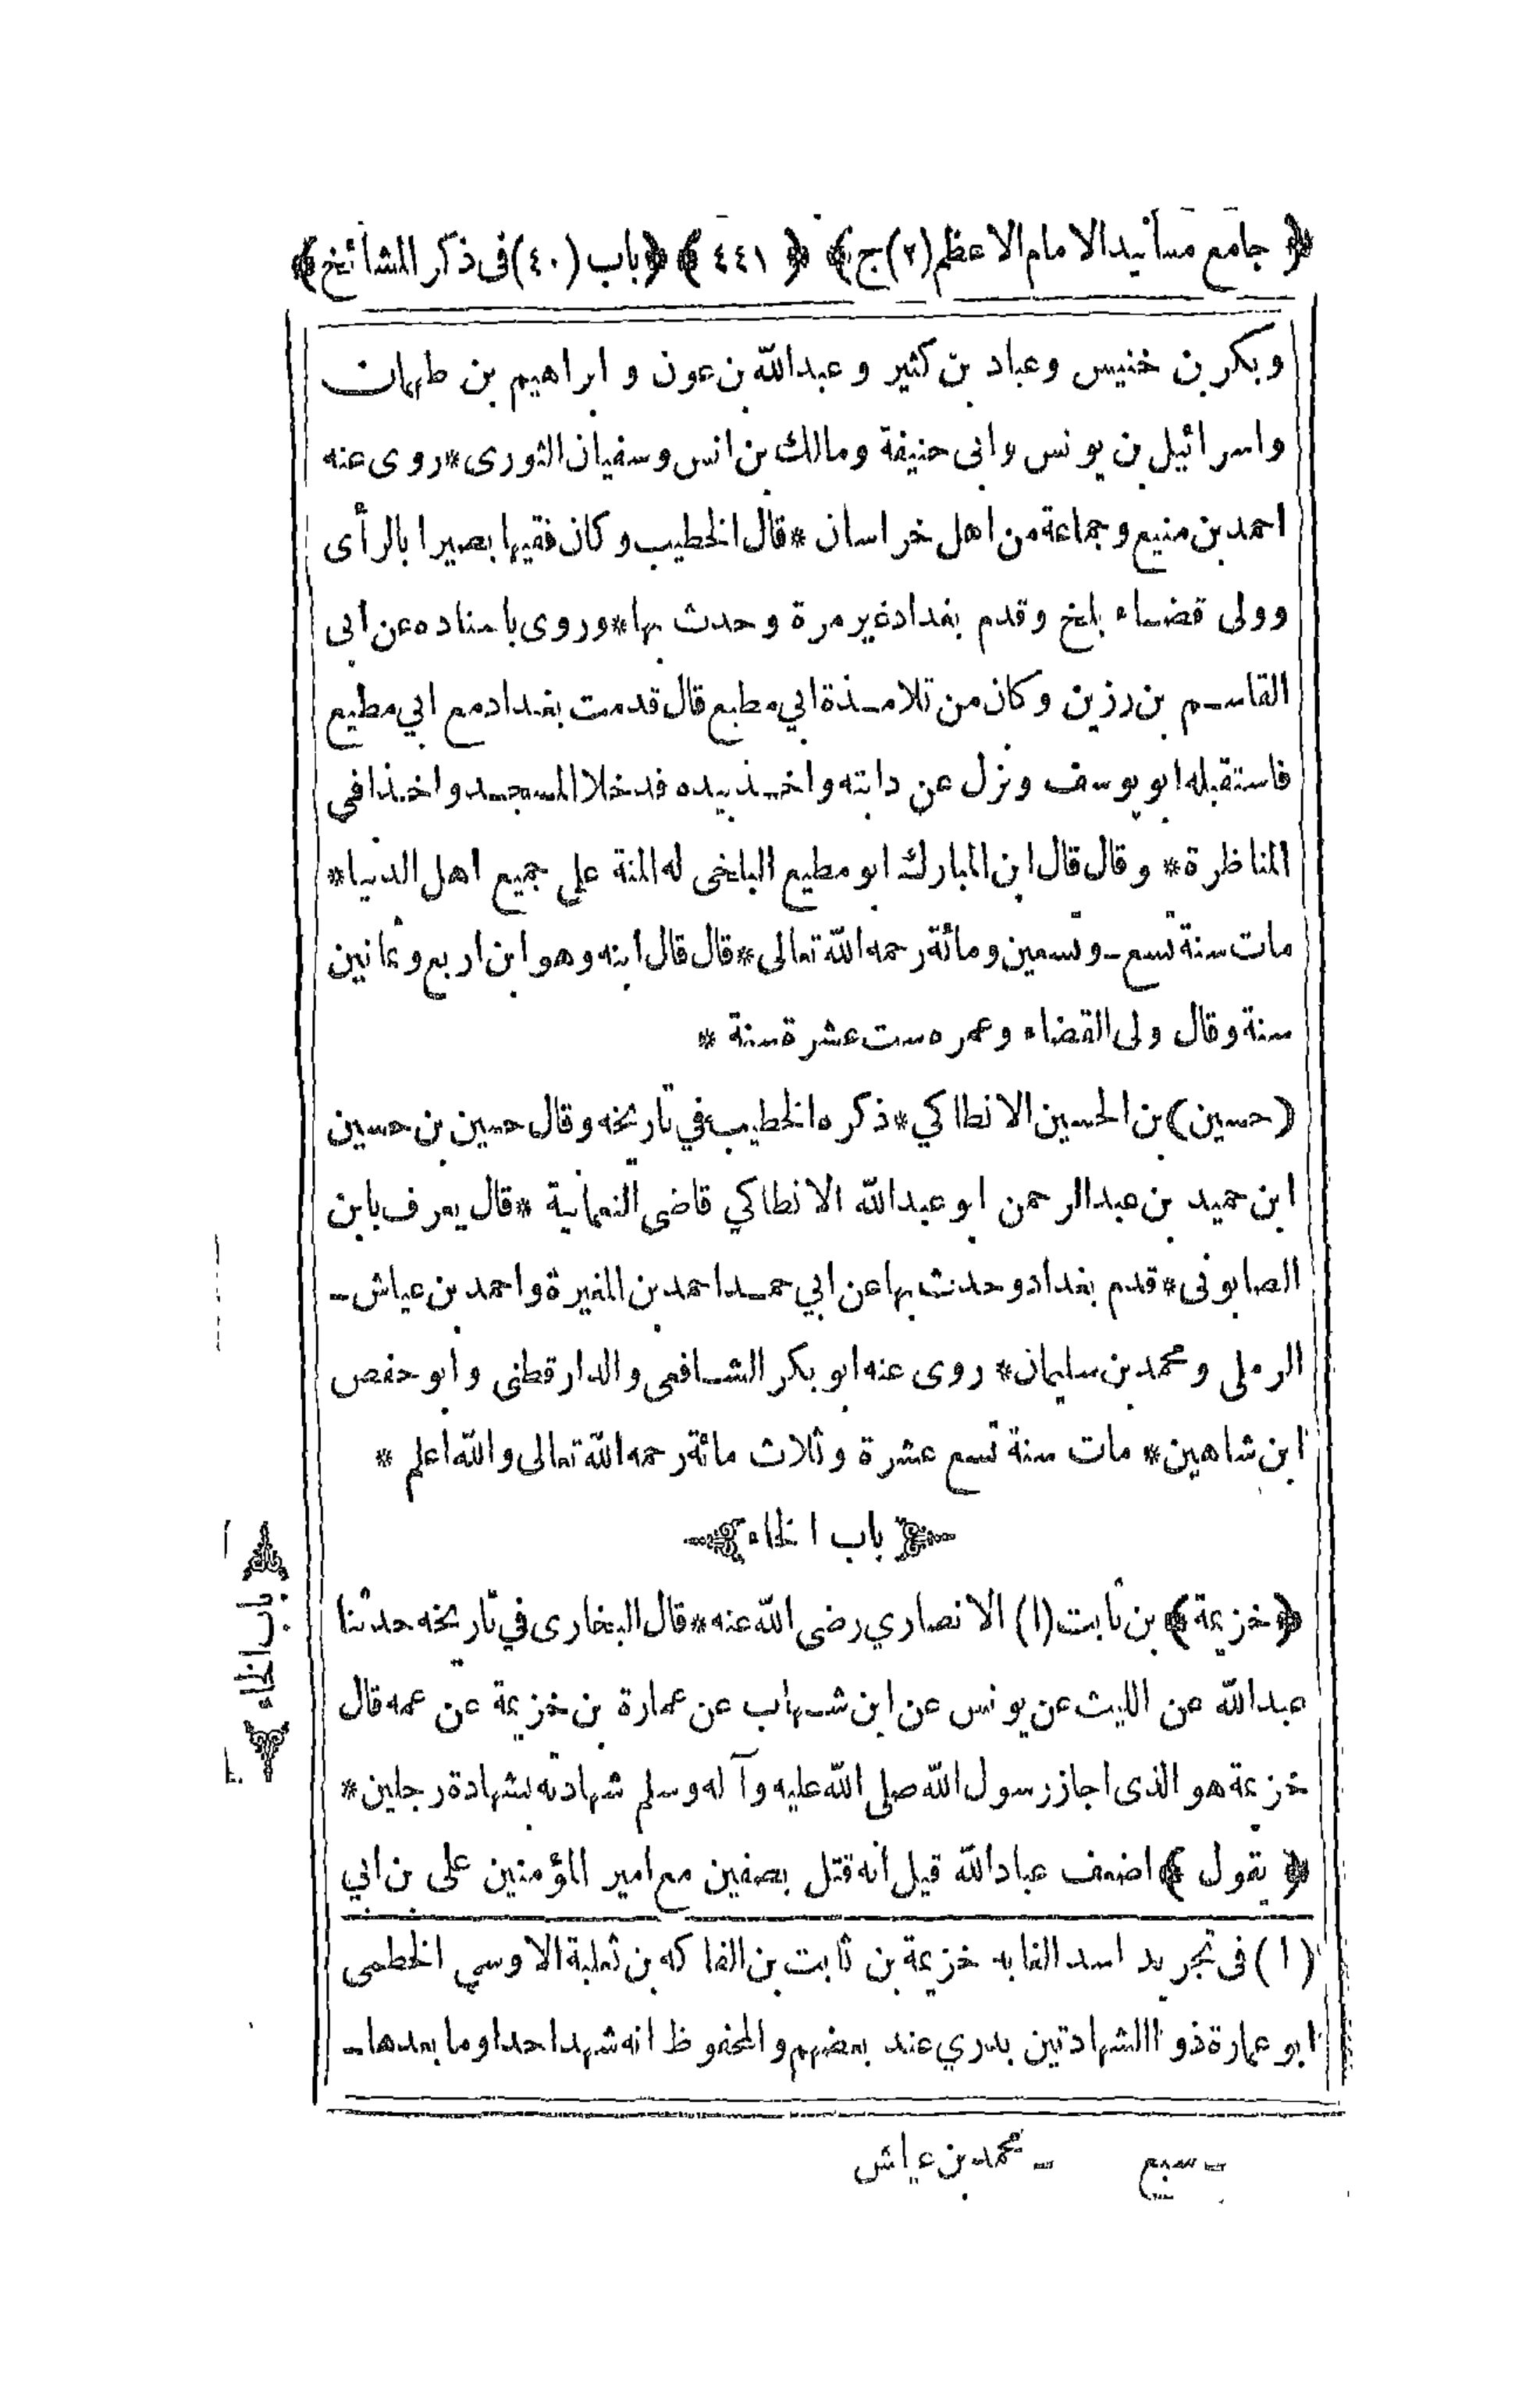 ﴿ جامع مسانيد الامام الاعظم (٢) ج ﴾ ﴿ ٤٤١ ﴾ ﴿ باب (٤٠) فى ذكر المشائخ ﴾
و بكر بن خنيس و عباد بن كثير و عبدالله بن عون و ابراهيم بن طهمان
واسرائيل بن يونس وابى حنيفة ومالك بن انس وسفيان الثورى * روى عنه
احمد بن منيع وجماعة من اهل خراسان * قال الخطيب وكان فقيها بصيرا بالرأى
وولى قضاء بلخ وقدم بغداد غير مرة وحدث بها * وروى باسناده عن ابى
القاسم بن رزين وكان من تلامذة ابي مطيع قال قدمت بغداد مع ابي مطيع
فاستقبله ابو يوسف ونزل عن دابته واخذ بيده فدخلا المسجد واخذا في
المناظرة * وقال قال ابن المبارك ابو مطيع البلخى له المنة على جميع اهل الدنيا *
مات سنة تسع ـ وتسعين ومائة رحمه الله تعالى * قال قال ابنه وهو ابن اربع وثمانين
سنة وقال ولى القضاء وعمره ست عشرة سنة *
(حسين) بن الحسين الانطاكي * ذكره الخطيب في تاريخه وقال حسين بن حسين
ابن حميد بن عبدالرحمن ابو عبدالله الانطاكي قاضى النعمانية * قال يعرف بابن
الصابونى * قدم بغداد وحدث بها عن ابي حمد احمد بن المغيرة واحمد بن عياش ـ
الرملى ومحمد بن سليمان * روى عنه ابو بكر الشافعى والدارقطنى وابو حفص
ابن شاهين * مات سنة تسع عشرة وثلاث مائة رحمه الله تعالى والله اعلم *
باب الخاء
﴿ خزيمة ﴾ بن ثابت (١) الانصاري رضى الله عنه * قال البخارى في تاريخه حدثنا
عبدالله عن الليث عن يونس عن ابن شهاب عن عمارة بن خزيمة عن عمه قال
خزيمة هو الذى اجاز رسول الله صلى الله عليه وآله وسلم شهادته بشهادة رجلين *
﴿ يقول ﴾ اضعف عباد الله قيل انه قتل بصفين مع امير المؤمنين على بن ابي
باب الخاء
(١) فى تجريد اسد الغابه خزيمة بن ثابت بن الفاكه بن ثعلبة الاوسي الخطمى
ابو عمارة ذو االشهادتين بدري عند بعضهم والمحفوظ انه شهد احدا وما بعدها ـ
ـ سبع ـ محمد بن عياش